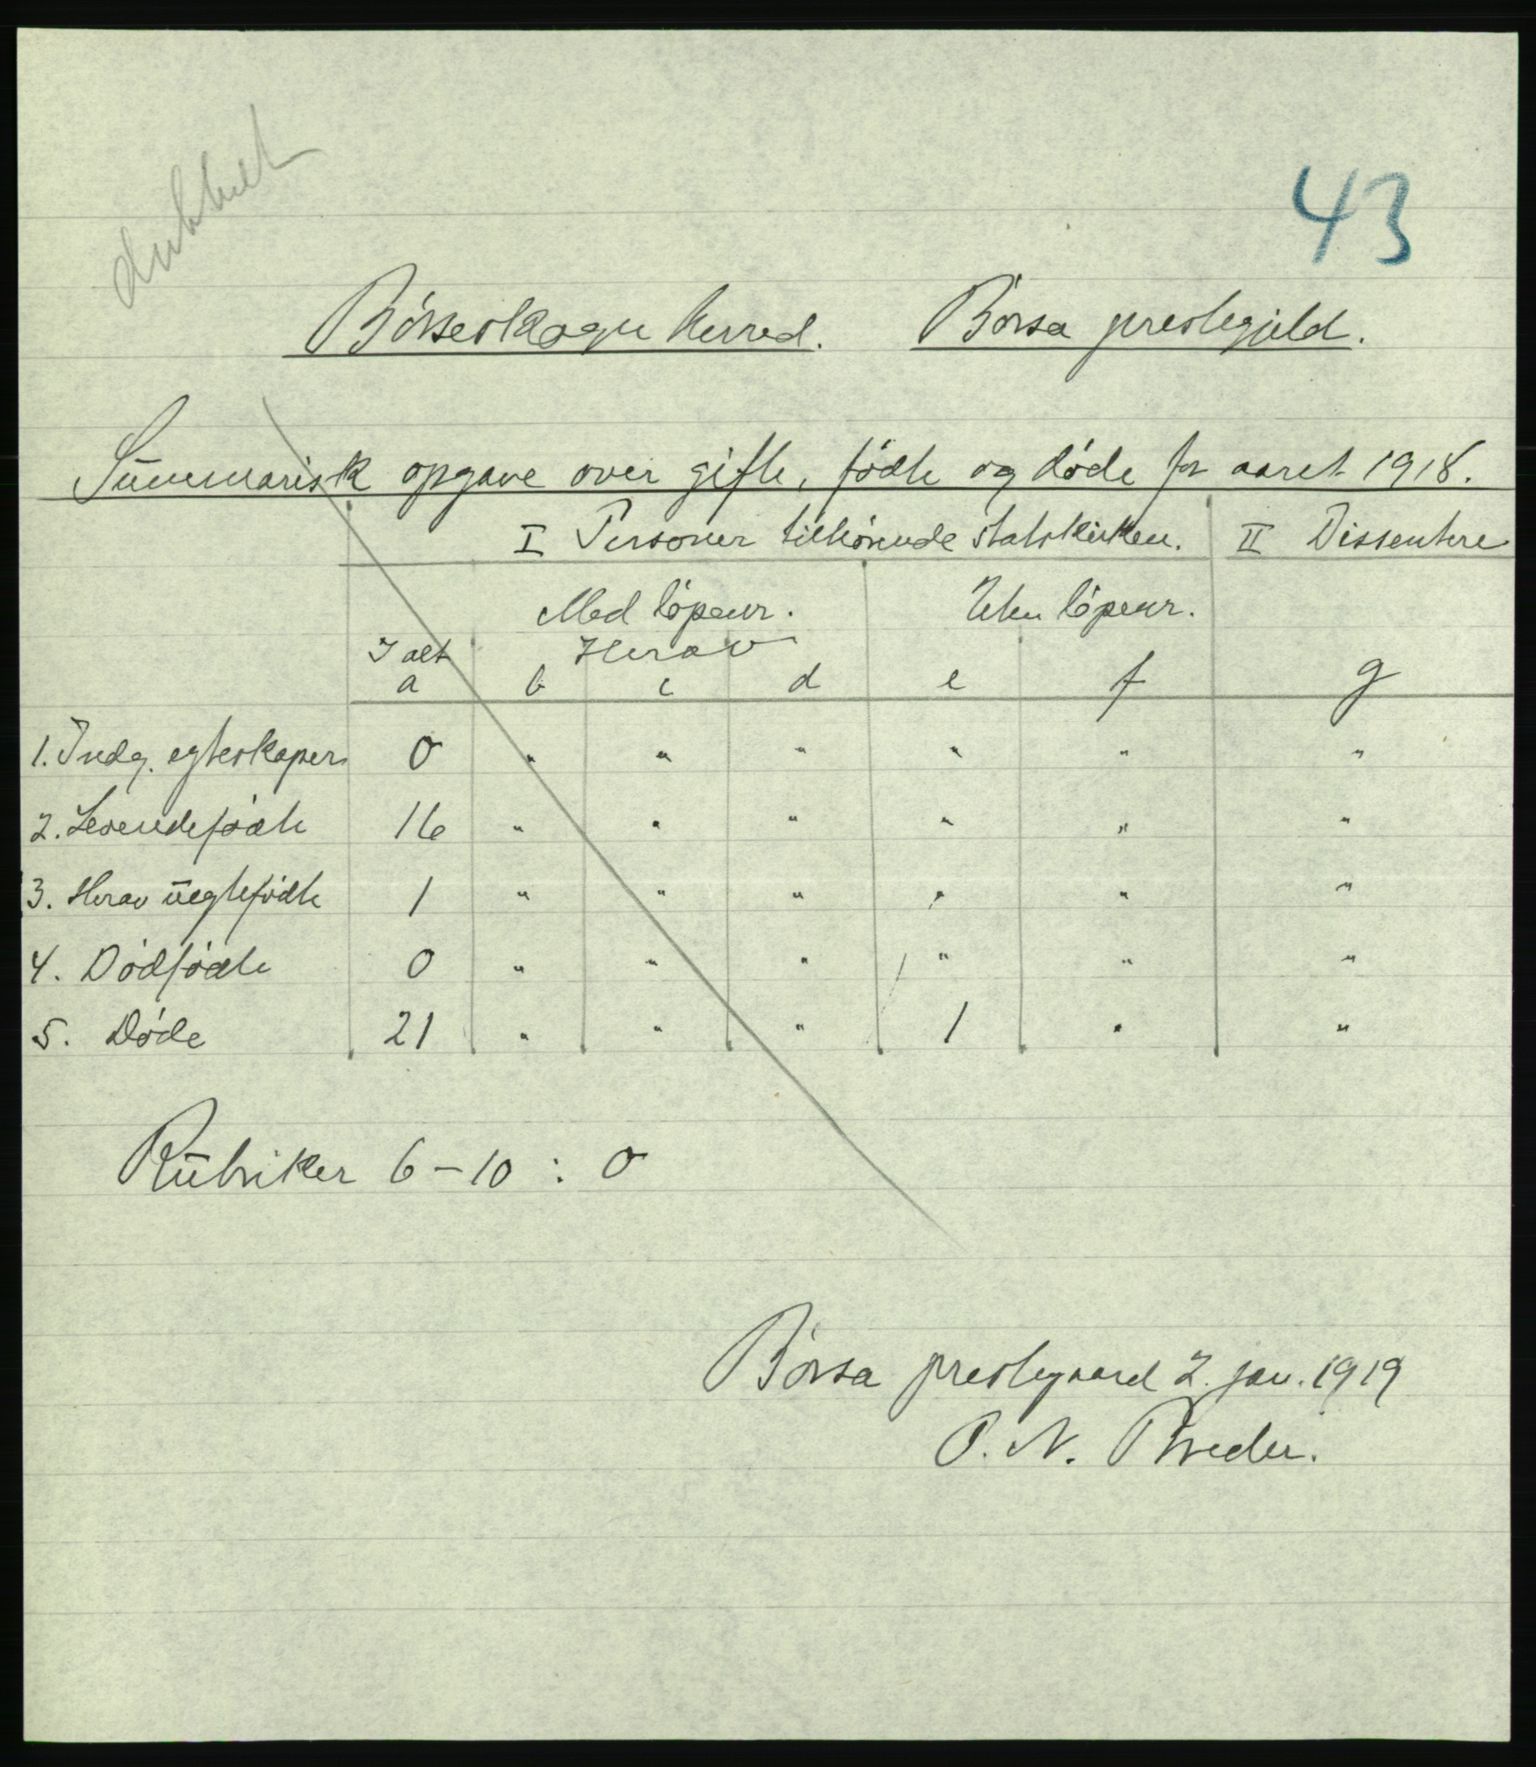 dubbelt
43
Börseskogn herred. Börsa prestegjeld.
Summarisk opgave over gifte, fødte og døde for aaret 1918.
I Personer tilhörende statskirken. II Dissentere
Med löpenr. Uten löpenr.
I alt Herav
a b c d e f g
1. Indg. egteskaper 0 " " " " " "
2. Levendefødte 16 " " " " " "
3. Herav uegtefødte 1 " " " " " "
4. Dødfødte 0 " " " " " "
5. Døde 21 " " " 1 " "
Rubriker 6-10 : 0
Børsa prestegaard 2. jan. 1919
O. N.